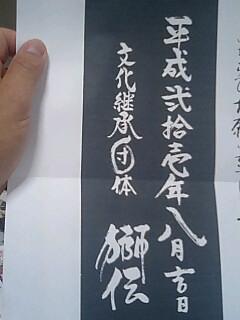 平成弐拾壱年八月吉日
文化継承団体
獅伝